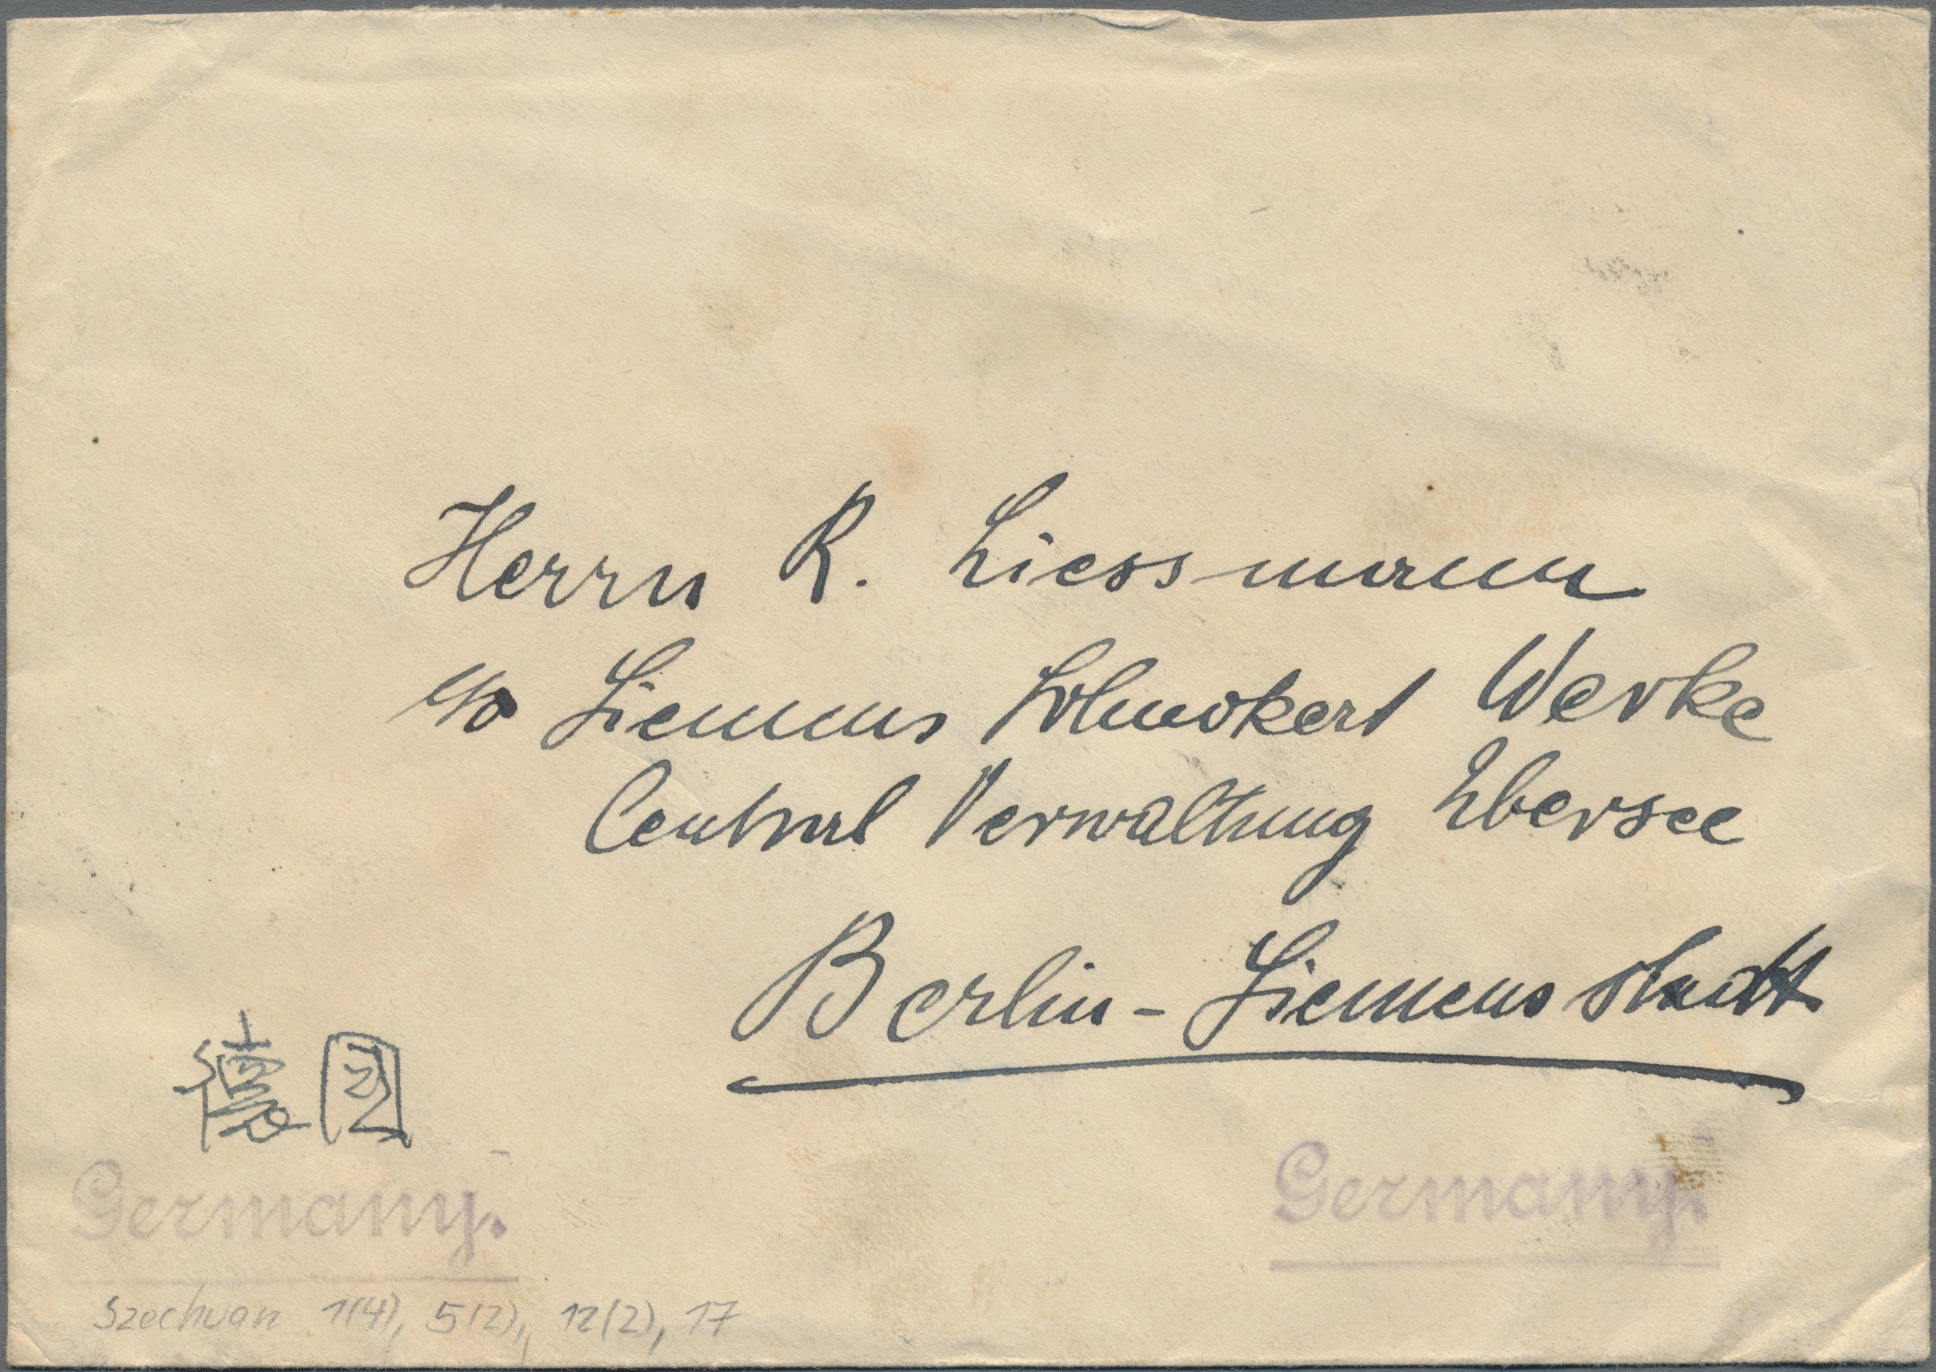 Herrn R. Liessmann
c/o Siemens Schuckert Werke
Central Verwaltung Übersee
Berlin-Siemensstadt
德国
Germany.
Germany.
Szechuan 1(4), 5(2), 12(2), 17